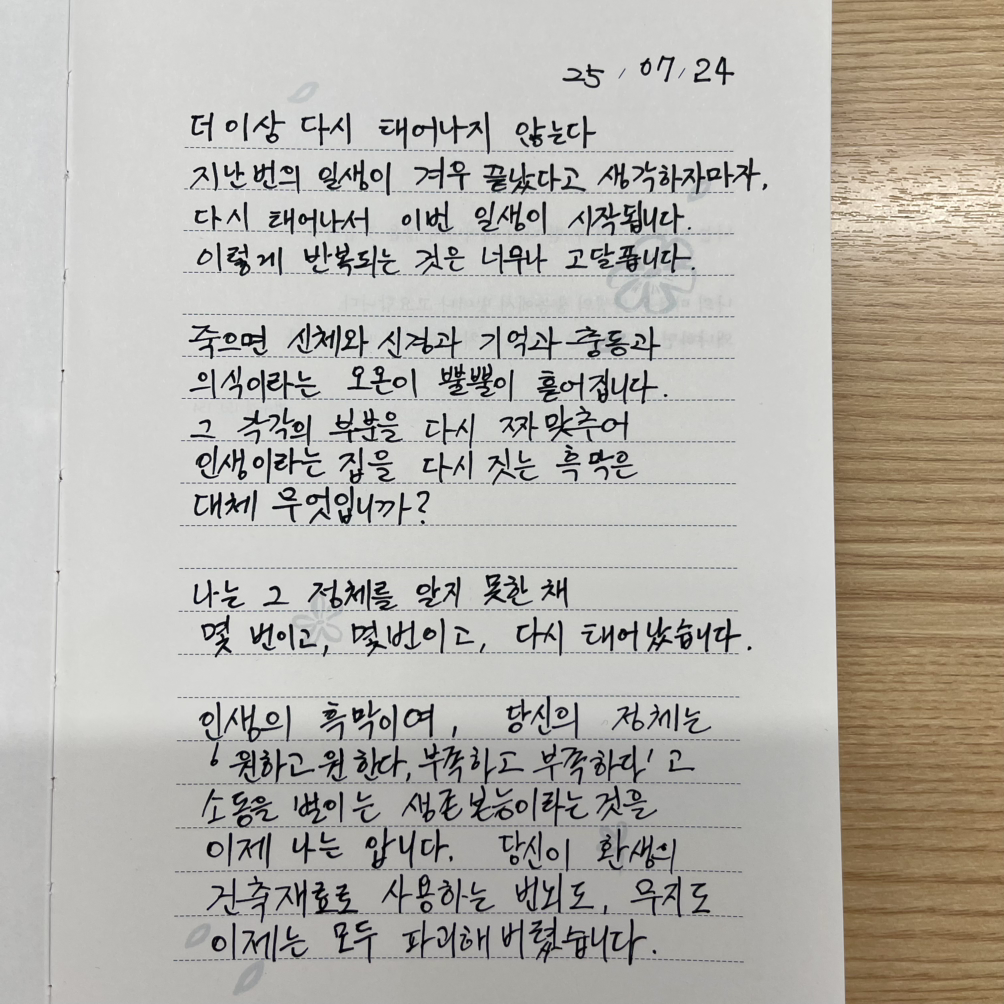 25, 07, 24
더 이상 다시 태어나지 않는다
지난 번의 일생이 겨우 끝났다고 생각하자마자,
다시 태어나서 이번 일생이 시작됩니다.
이렇게 반복되는 것은 너무나 고달픕니다.
죽으면 신체와 신경과 기억과 충동과
의식이라는 오온이 뿔뿔이 흩어집니다.
그 각각의 부분을 다시 짜 맞추어
인생이라는 집을 다시 짓는 흑막은
대체 무엇입니까?
나는 그 정체를 알지 못한 채
몇 번이고, 몇번이고, 다시 태어났습니다.
인생의 흑막이여, 당신의 정체는
'원하고 원한다, 부족하고 부족하다'고
소동을 벌이는 생존본능이라는 것을
이제 나는 압니다. 당신이 환생의
건축재료로 사용하는 번뇌도, 무지도
이제는 모두 파괴해 버렸습니다.